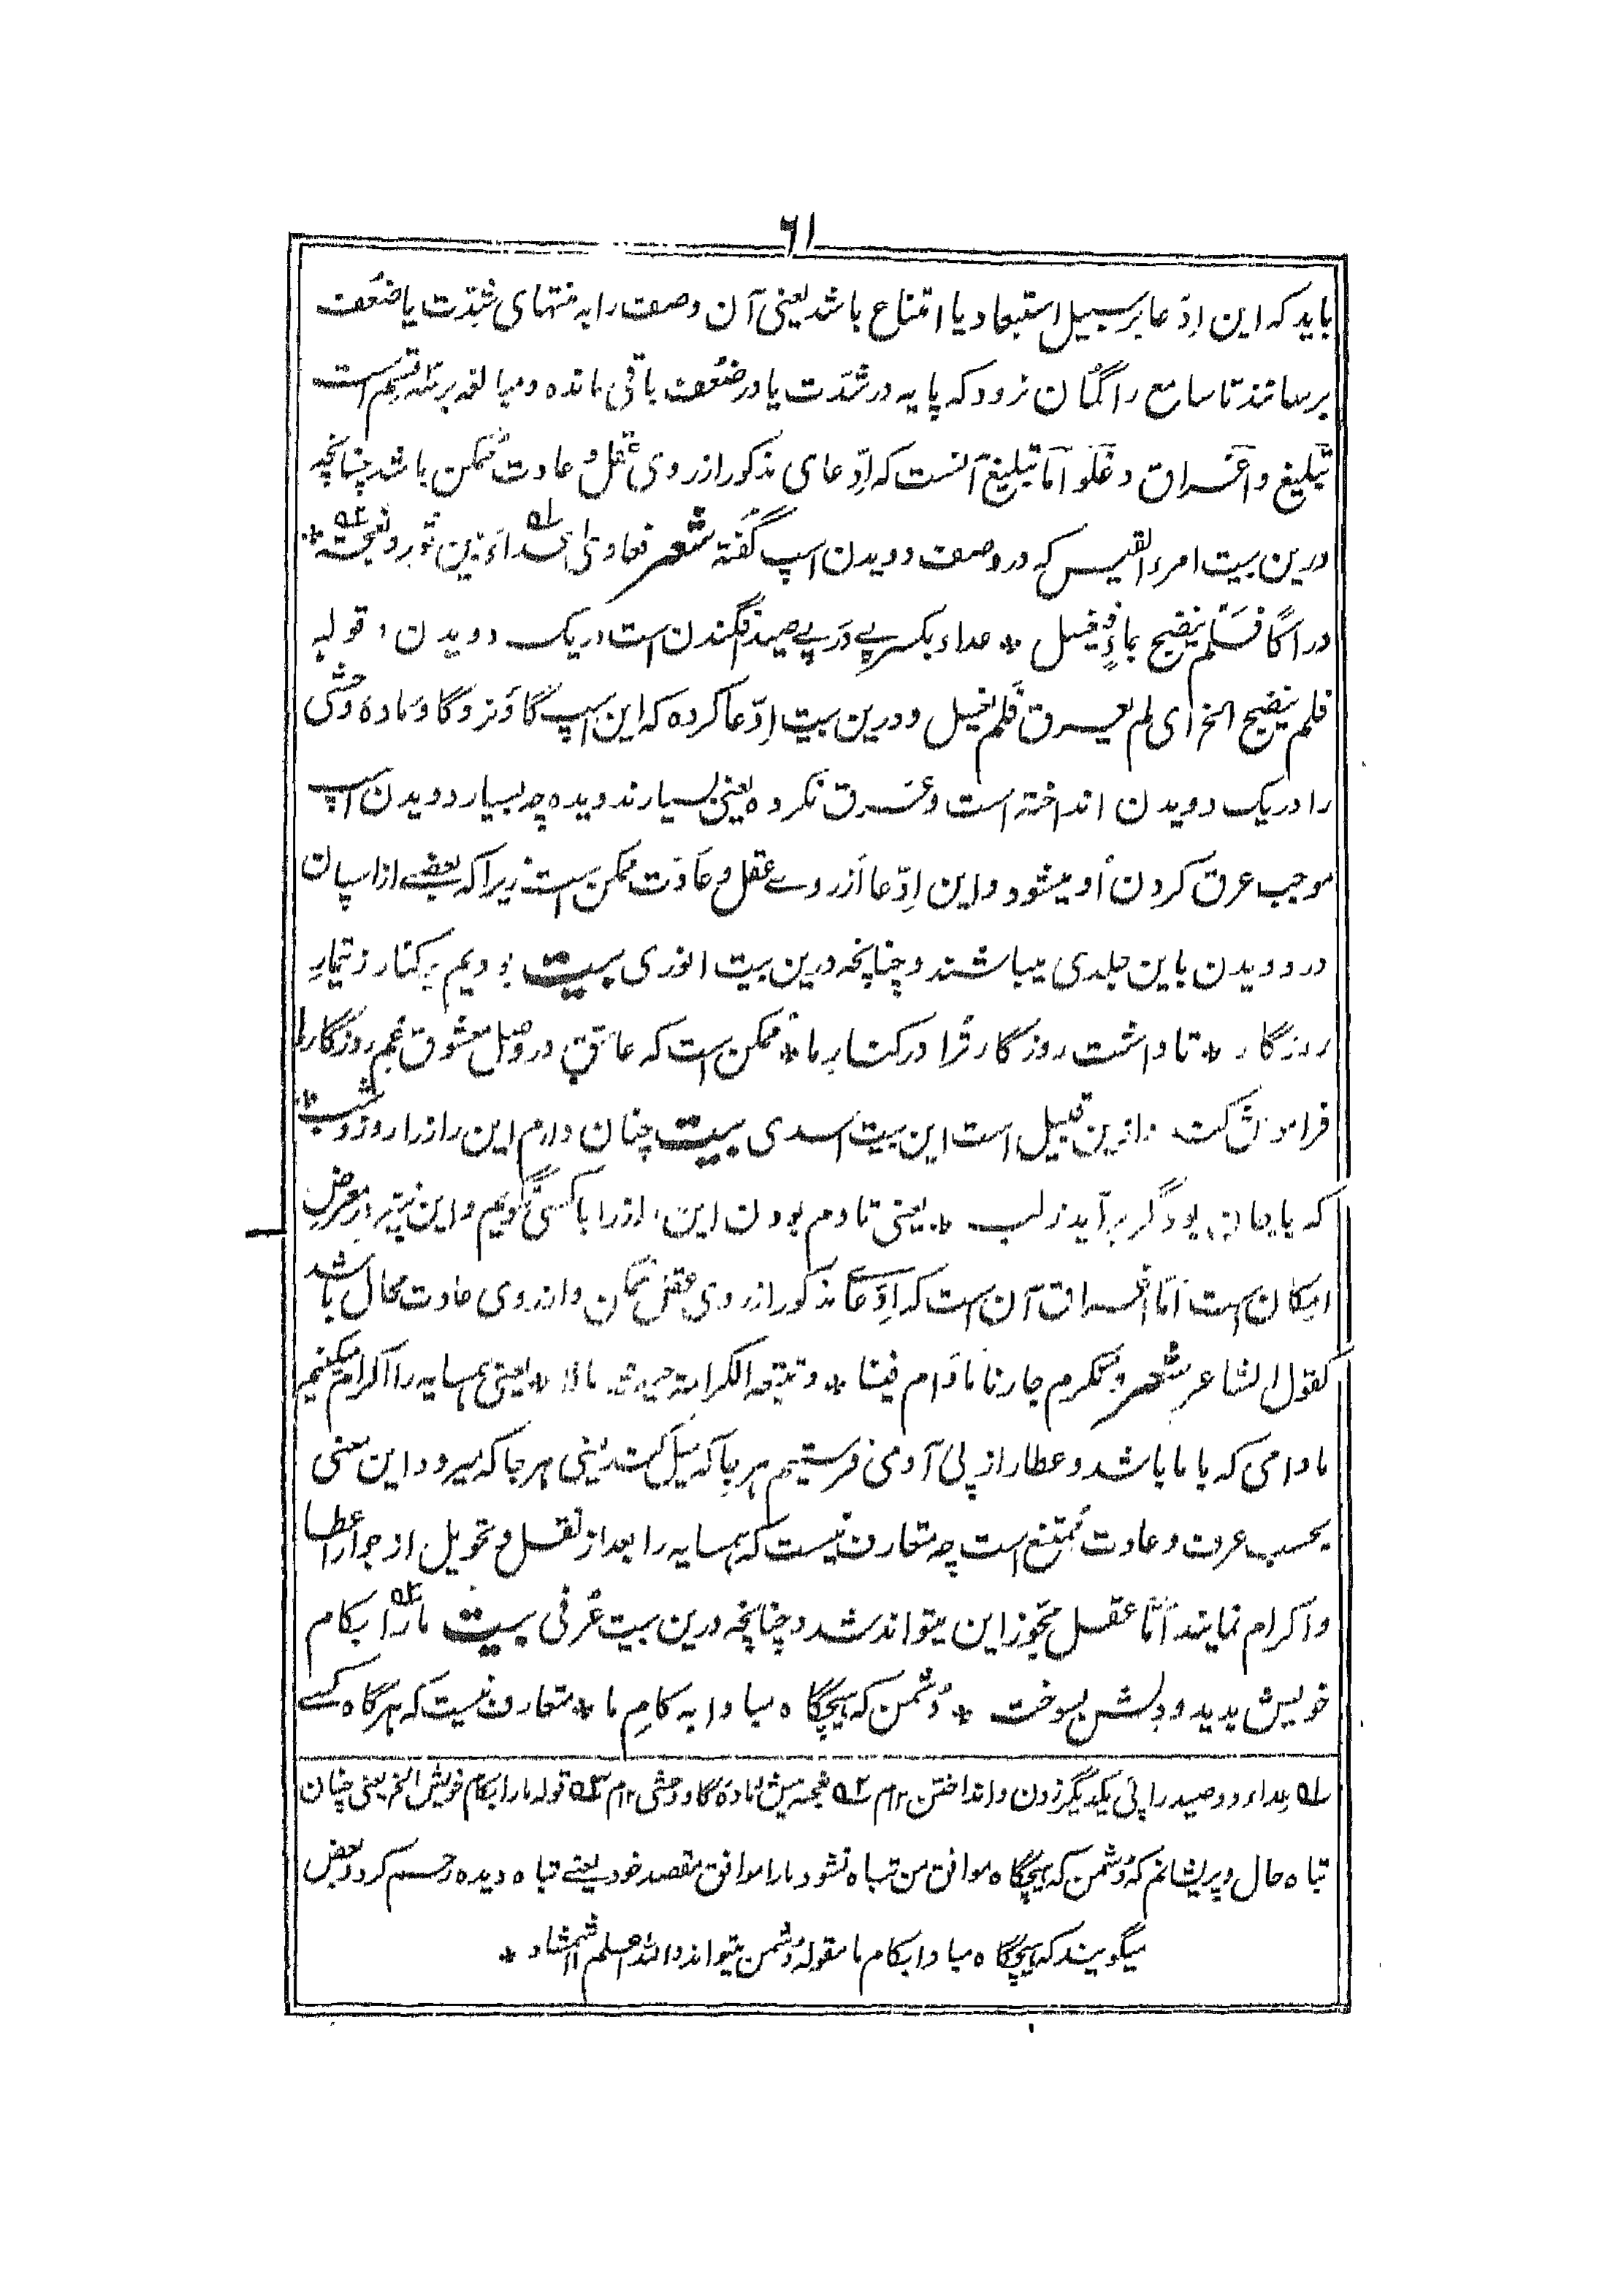 ۶۱
باید که این اِدّعا بر سبیل استبعاد یا امتناع باشد یعنی آن وصف را به منتهای شِدّت یا ضَعُف
برسانند تا سامع را گمان نرود که پایه در شدّت یا در ضعُف باقی مانده و مبالغه بر سه قسم است
تبلیغ و اغراق و غلو اما تبلیغ آنست که اِدّعای مذکور از روی عقل و عادت ممکن باشد چنانچه
درین بیت امرء القیس که در وصف دویدن اسپ گفته شعر فعادی عداء بین ثور و نعجة *
دراکا فلم ینضح بماء فیغسل * عداء بکسر پے در پے صید افگندن است در یک دویدن و قوله
فلم ینضح الخ ای لم یعرق فلم یغسل و درین بیت اِدّعا کرده که این اسپ گاو نر و گاو ماده وحشی
را در یک دویدن انداخته است و عرق نکرده یعنی بسیار ندویده چه بسیار دویدن اسپ
موجب عرق کردن او میشود و این اِدّعا از روے عقل و عادت ممکن است زیرا که بعضے از اسپان
در دویدن باین جلدی میباشند و چنانچه درین بیت انوری بیت بودیم بر کنار ز تیمار
روزگار * تا داشت روزگار ترا در کنار ما * ممکن است که عاشق در وصل معشوق غم روزگار را
فراموش کند و ازین قبیل است این بیت اسدی بیت چنان دارم این راز را روز و شب *
که با جان بود گر بر آید ز لب * یعنی تا دم بودن این راز را با کسی نگویم و این نیز در معرض
امکان است اما اغراق آن است که ادّعای مذکور از روی عقل ممکن و از روی عادت محال باشد
کقول الشاعر شعر و نکرم جارنا ما دام فینا * و نتبعه الکرامة حیث مالا * یعنی همسایه را اکرام میکنیم
مادامی که با ما باشد و عطا را از پی او می فرستیم هر جا که میل کند یعنی هر جا که میرود این معنی
بحسب عرف و عادت ممتنع است چه متعارف نیست که همسایه را بعد از نقل و تحویل از جوار اعطا
و اکرام نمایند اما عقل مجوز این میتواند شد و چنانچه درین بیت عُرفی بیت ما را بکام
خویش بدید و دلش بسوخت * دشمن که هیچگاه مبادا به کام ما * متعارف نیست که هرگاه کسے
۱ه عداء دو صید را پی یکدیگر زدن و انداختن ۱۲م ۲ه نعجه میش ماده گاو وحشی ۱۲م ۳ه قوله ما را بکام خویش الخ یعنی چنان
تباه حال و پریشانم که دشمن که هیچگاه موافق من تباه نشود ما را موافق مقصد خود یعنے تباه دیده رحم کرد و بعض
میگویند که هیچگاه مبادا بکام ما مقوله دشمن میتواند والله اعلم *